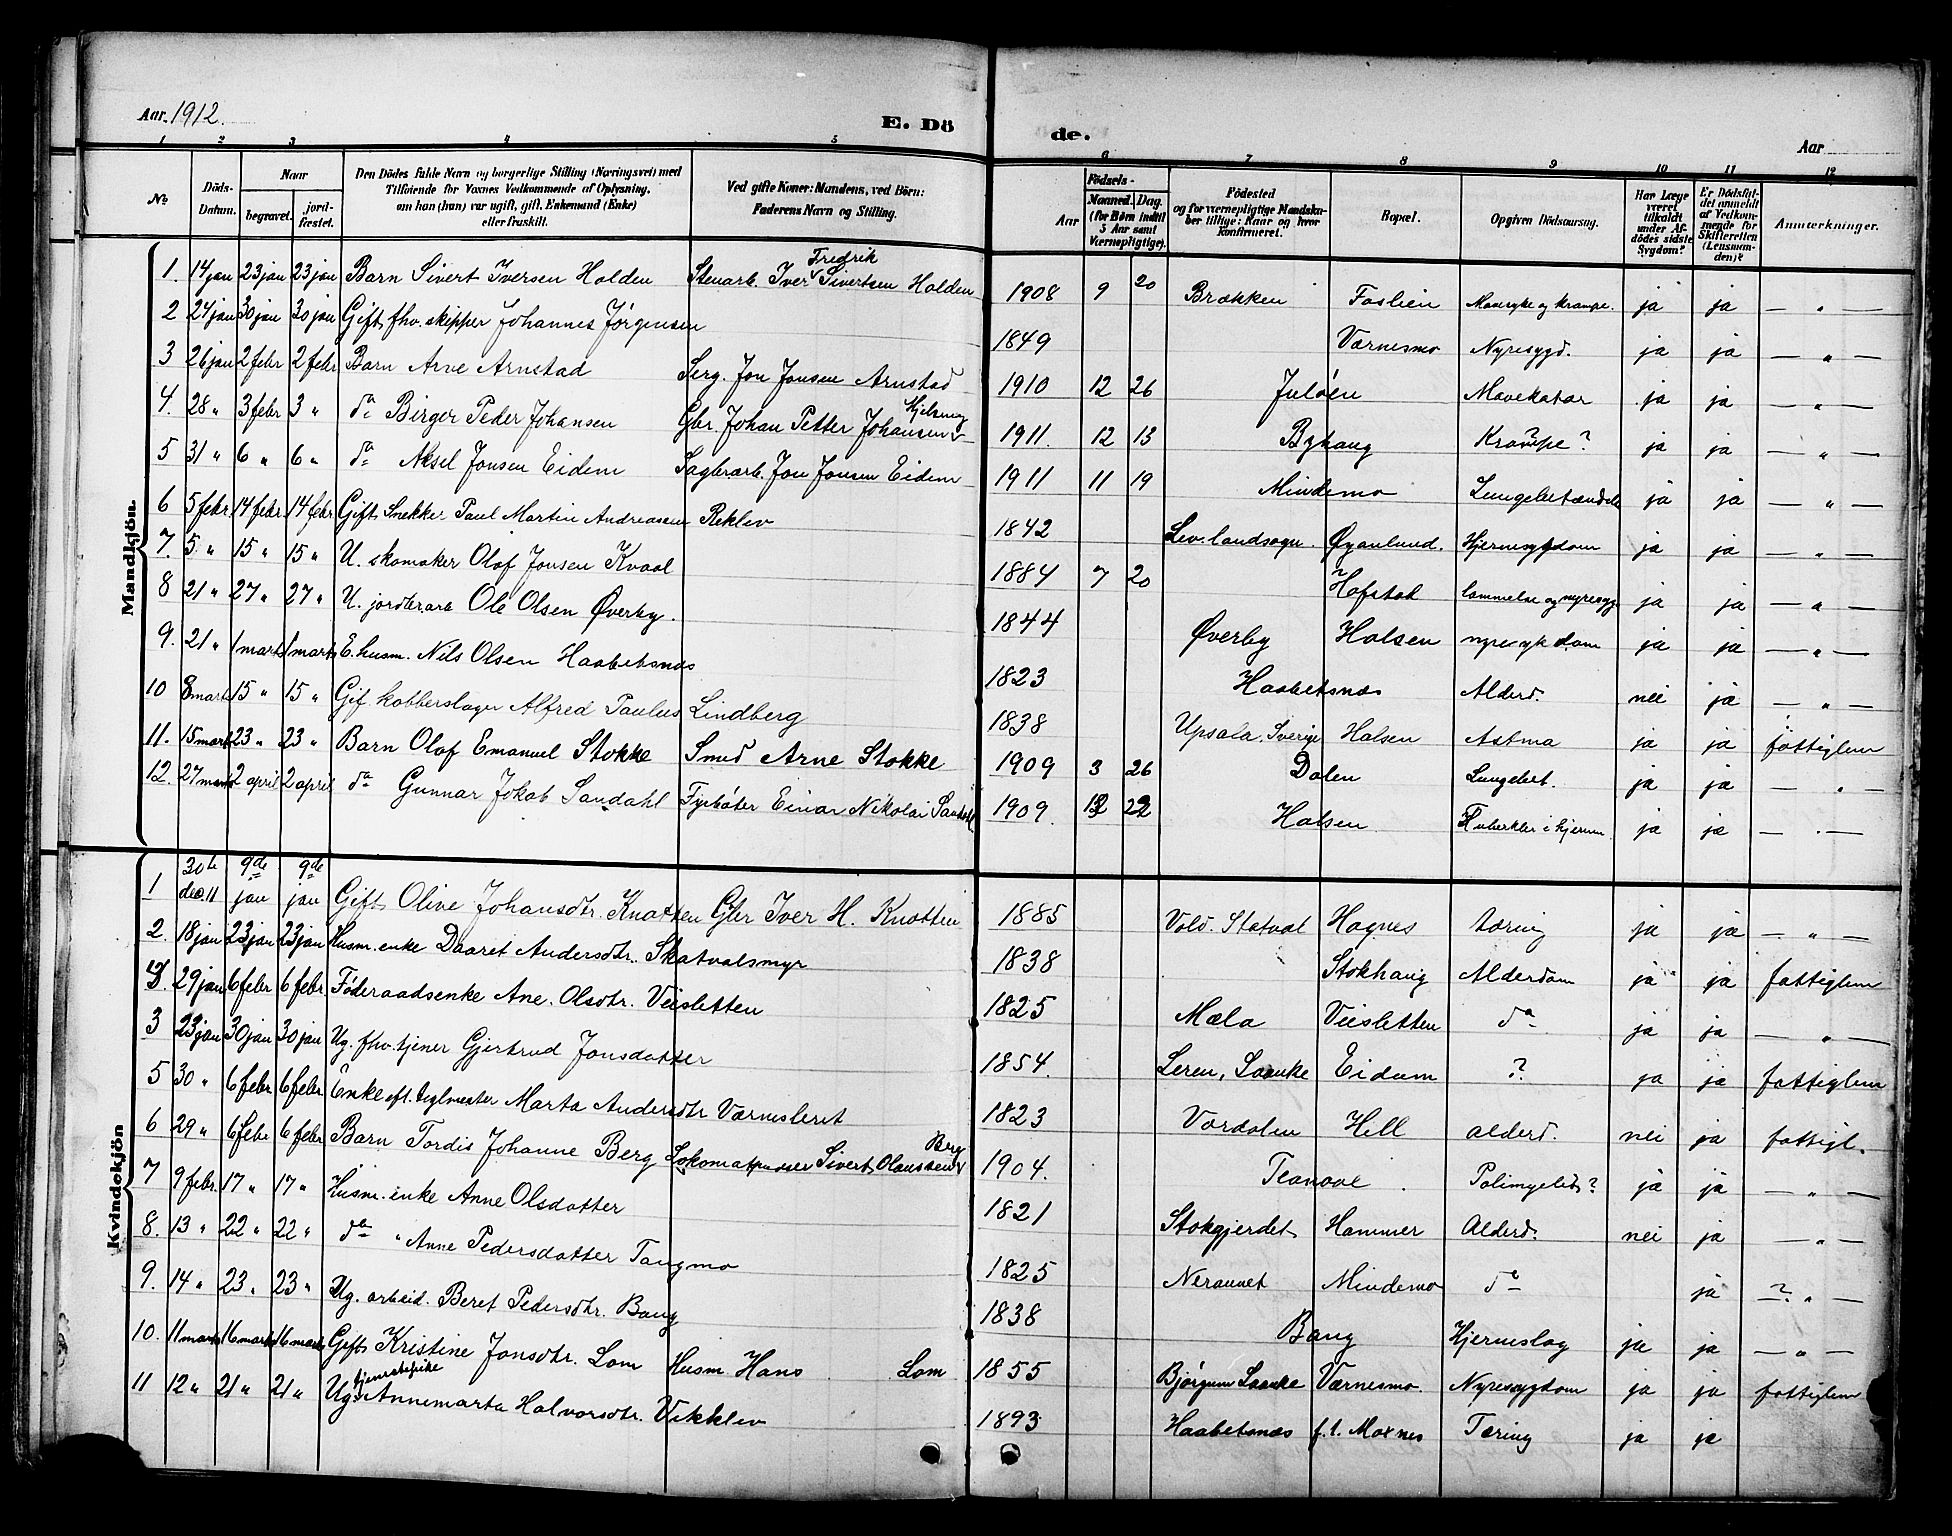 Aar 1912.
E. Dö
de.
Aar
1 2 3 4 5 6 7 8 9 10 11 12
No
Döds-Datum.
Naar
begravet.
jord-fæstet.
Den Dödes fulde Navn og borgerlige Stilling (Næringsvei) med Tilföiende for Voxnes Vedkommende af Oplysning, om han (hun) var ugift, gift, Enkemand (Enke) eller fraskilt.
Ved gifte Koner: Mandens, ved Börn: Faderens Navn og Stilling.
Födsels-
Aar
Maaned. Dag.
(for Börn indtil 5 Aar samt Værnepligtige).
Födested og for værnepligtige Mandskaber tillige: Naar og hvor Konfirmeret.
Bopæl.
Opgiven Dödsaarsag.
Har Læge været tilkaldt under Afdödes sidste Sygdom?
Er Dödsfaldet anmeldt af Vedkommende for Skifteretten (Lensmanden)?
Anmærkninger.
Mandkjön.
1. 14 jan 23 jan 23 jan Barn Sivert Iversen Holden Stenarb. Iver Fredrik Sivertsen Holden 1908 9 20 Brækken Foslien Mavesyke og krampe. ja ja — " —
2 24 jan 30 jan 30 jan Gift fhv. skipper Johannes Jörgensen 1849 Værnesmo Nyresygd. ja ja — " —
3 26 jan 2 febr 2 febr Barn Arve Arnstad Serg. Jon Jonsen Arnstad 1910 12 26 Juløen Mavekatar ja ja — " —
4. 28 " 3 febr 3 " do Birger Peder Johansen Gbr. Johan Petter Johansen Hjelseng 1911. 12 13 Byhaug Krampe? ja ja — " —
5 31 " 6 " 6 " do Aksel Jonsen Eidem Sagbrarb. Jon Jonsen Eidem 1911 11 19 Mindemo Lungebetændels ja ja — " —
6 5 febr. 14 febr. 14 febr Gift Snekker Paul Martin Andreasen Reklev 1842 Lev. landsogn Øyanlund. Hjernesygdom ja ja — " —
7. 5. " 15 " 15 " U. skomaker Olof Jonsen Kvaal 1884 7 20 Hofstad ja ja — " —
8 21 " 27 " 27 " U. jordbrarb Ole Olsen Øverby. 1844 Øverby Halsen nyresykdom ja ja — " —
9. 21 " 1 marts 1 marts E. husm. Nils Olsen Haabetsnæs 1823 Haabetsnæs Alderd. nei ja — " —
10 8 marts 15 " 15 " Gif. kobberslager Alfred Paulus Lindberg 1838 Upsala, Sverige Halsen Astma ja ja fattiglem
11. 15 marts 23 " 23 " Barn Olaf Emanuel Stokke Smed Arne Stokke 1909 3 26 Dalen Lungebet. ja ja — " —
12. 27 marts 2 april 2 april do Gunnar Jakob Sandahl Fyrbøter Einar Nikolai Sandahl 1909. 12 22 Halsen Tuberkler i hjernen. ja ja — " —
Kvindekjön
1 30te dec. 11 9de jan 9de jan Gift Olive Johansdtr. Knotten Gbr Iver H. Knotten 1885 Vold. Statval Hognes tæring ja ja — " —
2. 18 jan 23 jan 23 jan Husm. enke Daaret Andersdtr. Skatvalsmyr 1838 Stokhaug Alderdom ja ja fattiglem
4. 29 jan 6 febr 6 febr. Føderaadsenke Ane Olsdtr. Veisletten 1825 Mæla Veisletten do ja ja — " —
3 23 jan 30 jan 30 jan Ug. fhv. tjener Gjertrud Jonsdatter 1854. Leren, Saanke Eidum ? ja ja fattiglem
5 30 " 6 febr. 6 febr. Enke eft. teglmester Marta Andersdtr Værnesleret 1823 Værdalen Hell alderd. nei ja fattigl.
6 29 " 6 febr 6 febr Barn Tordis Johanne Berg Lokomotpudser Sivert Olaussen Berg 1904. Teanove Polimyelit? ja ja — " —
7 9 febr. 17 " 17 " Husm. enke Anne Olsdatter 1821 Stokgjerdet Hammer Alderd. nei ja — " —
8. 13 " 22 " 22 " do " Anne Pedersdatter Tangmo 1825 Neraunet Mindemo do ja — ? " —
9. 14 " 23 " 23 " Ug. arbeid. Beret Pedersdtr. Bang 1838 Bang Hjerneslag ja ja — " —
10. 11 marts 16 marts 16 marts Gift Kristine Jonsdtr. Lom Husm Hans Lom 1855 Bjørgum Saanke Værnesmo. Nyresygdom ja ja fattiglem
11 12 " 21 " 21 " Ug. tjenestepike Annemarta Halvorsdtr. Vikklev 1893 Haabetsnæs f. t. Moxnes Tæring ja ja